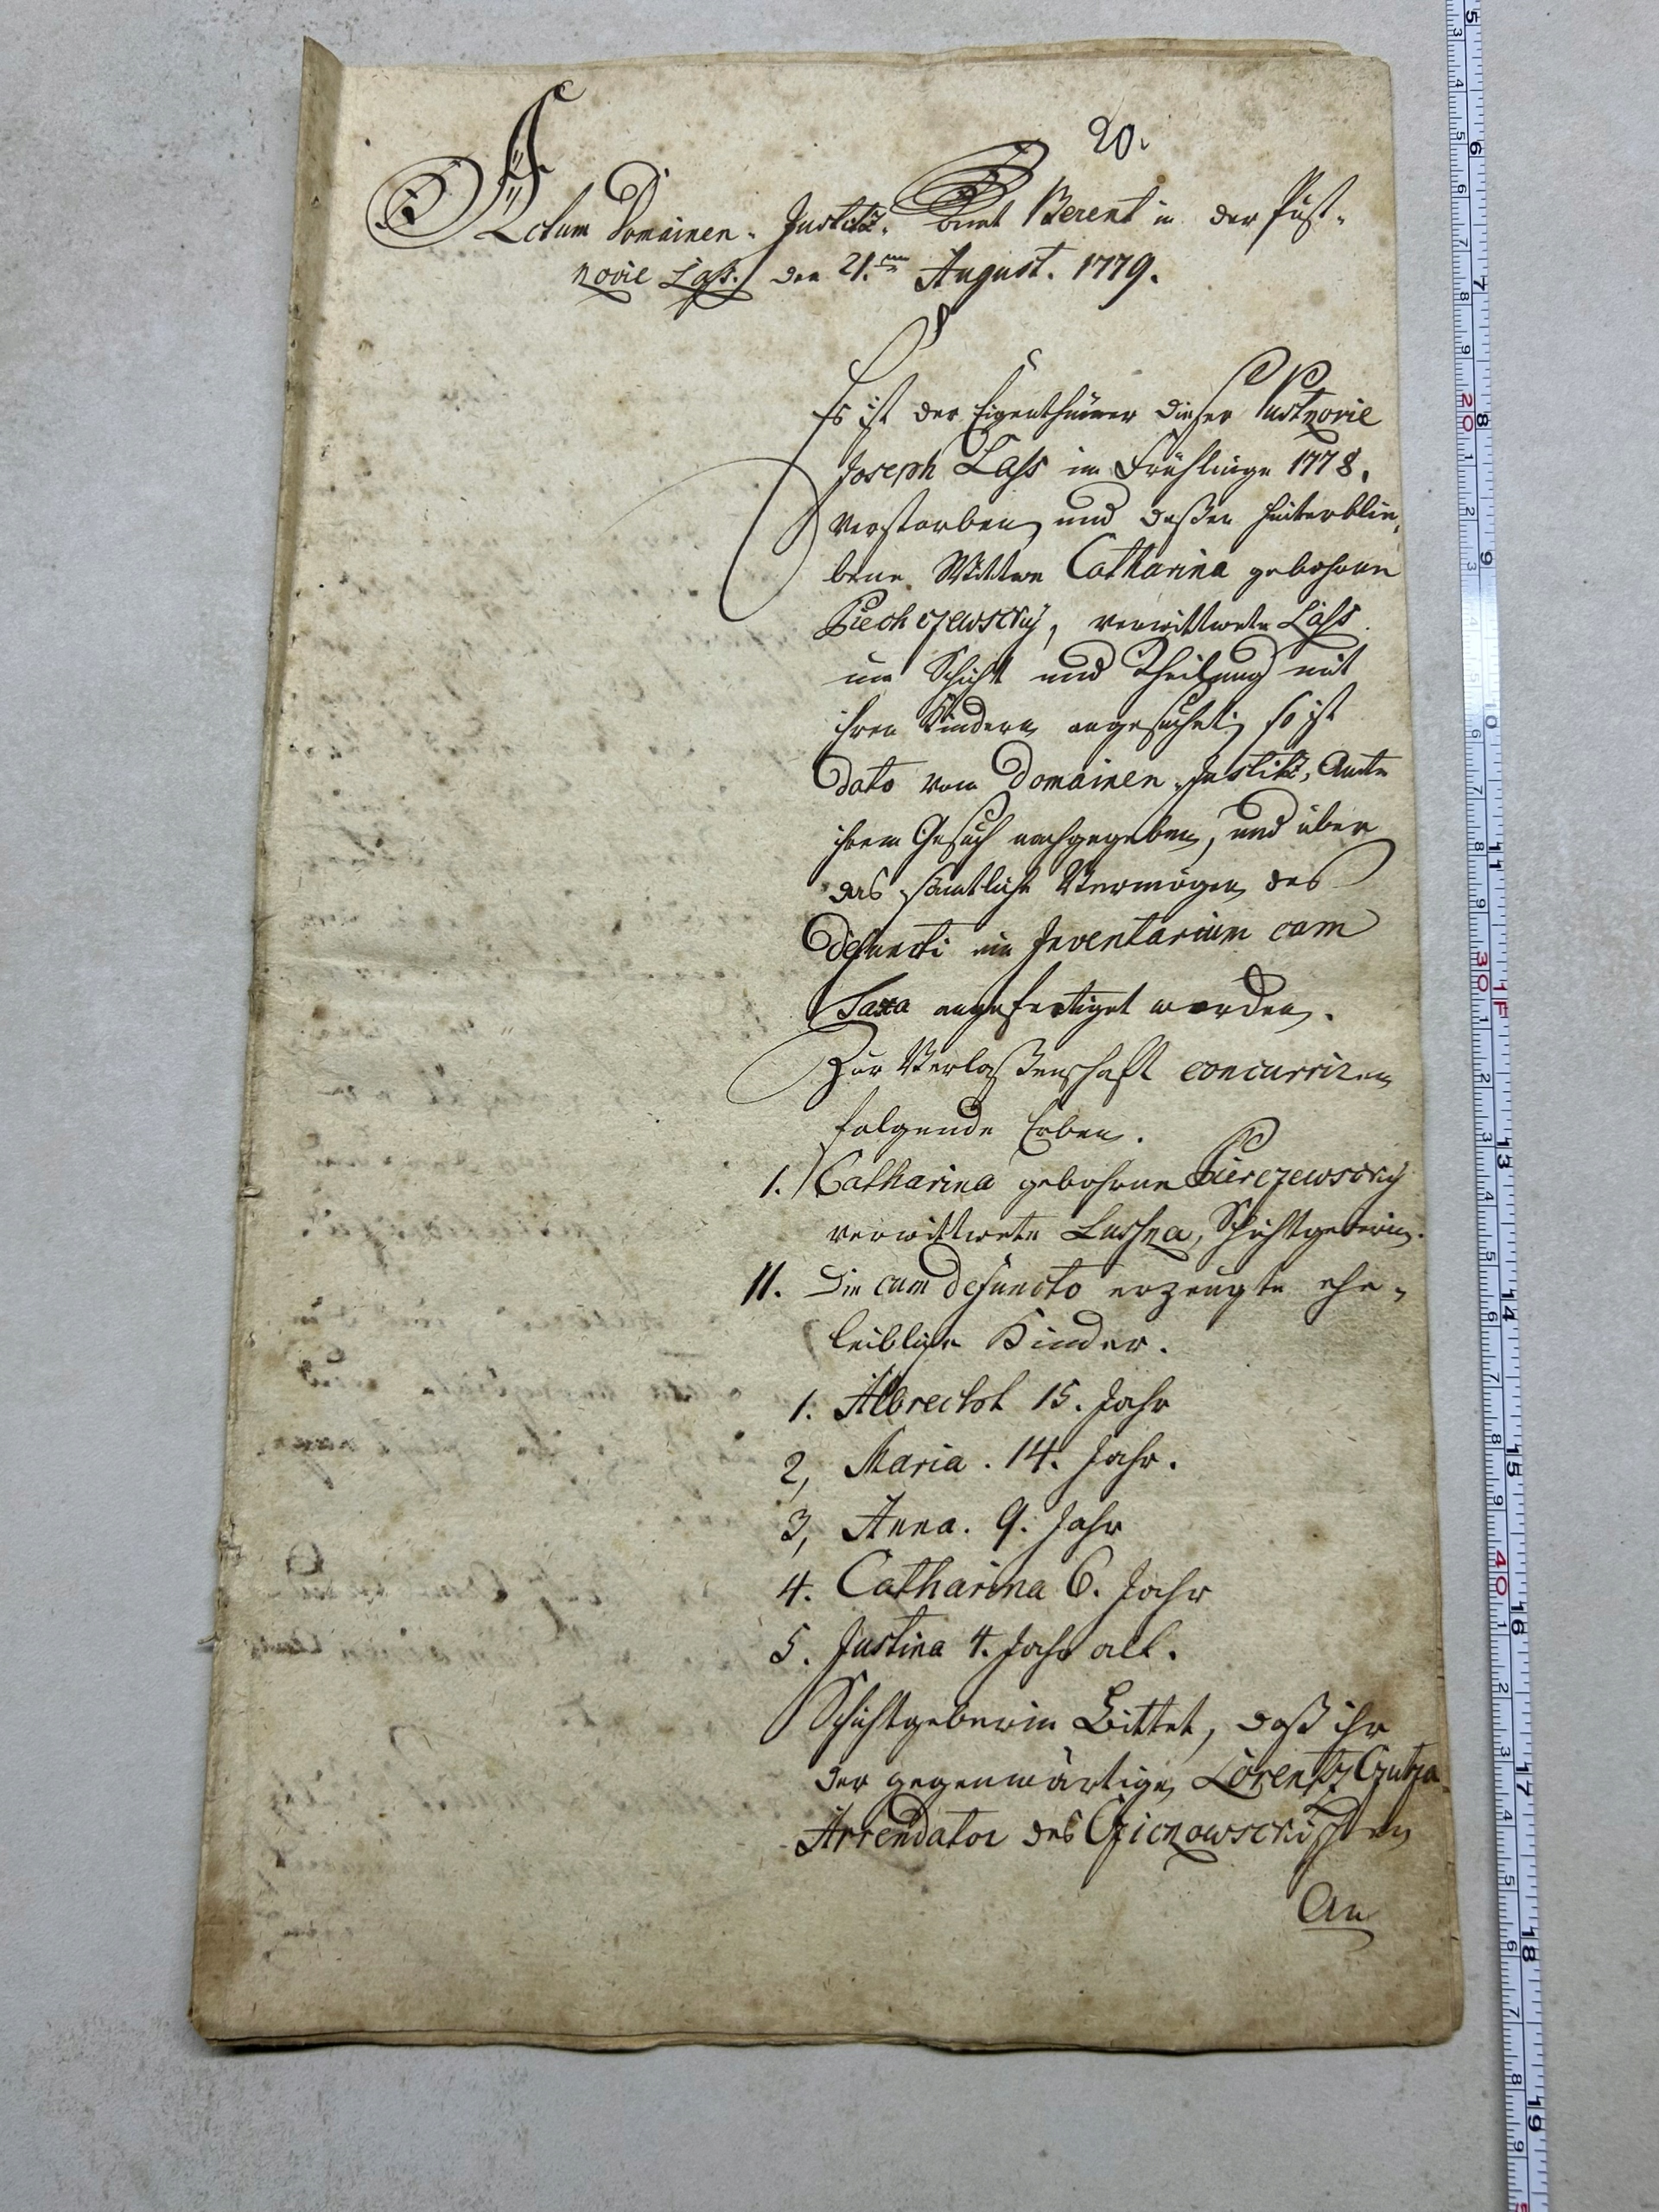 20.
Actum Domainen-Justitz-Amt Berent in der Pust-
kovie Lass. den 21.ten August. 1779.
Es ist der Eigenthümer dieser Pustkovie
Joseph Lass im Frühlinge 1778.
verstorben, und deßen hinterblie-
bene Wittwe Catharina gebohrne
verwittwete Lass
um Schicht und Theilung mit
ihren Kindern angesuchet; so ist
dato vom Domainen-Justitz-Amte
ihrem Gesuch nachgegeben, und über
das sämtliche Vermögen des
Defuncti ein Inventarium cum
Taxa angefertiget worden.
Zur Verlaßenschaft concurriren
folgende Erben.
I. Catharina gebohrne
verwittwete Schichtgeberin.
II. Die cum defuncto erzeugte ehe-
leibliche Kinder.
1. Albrecht 15. Jahr
2, Maria. 14. Jahr.
3, Anna. 9. Jahr
4. Catharina 6. Jahr
5. Justina 4. Jahr alt.
Schichtgeberin Bittet, daß ihr
der gegenwärtige Lorentz
Arrendator des
An